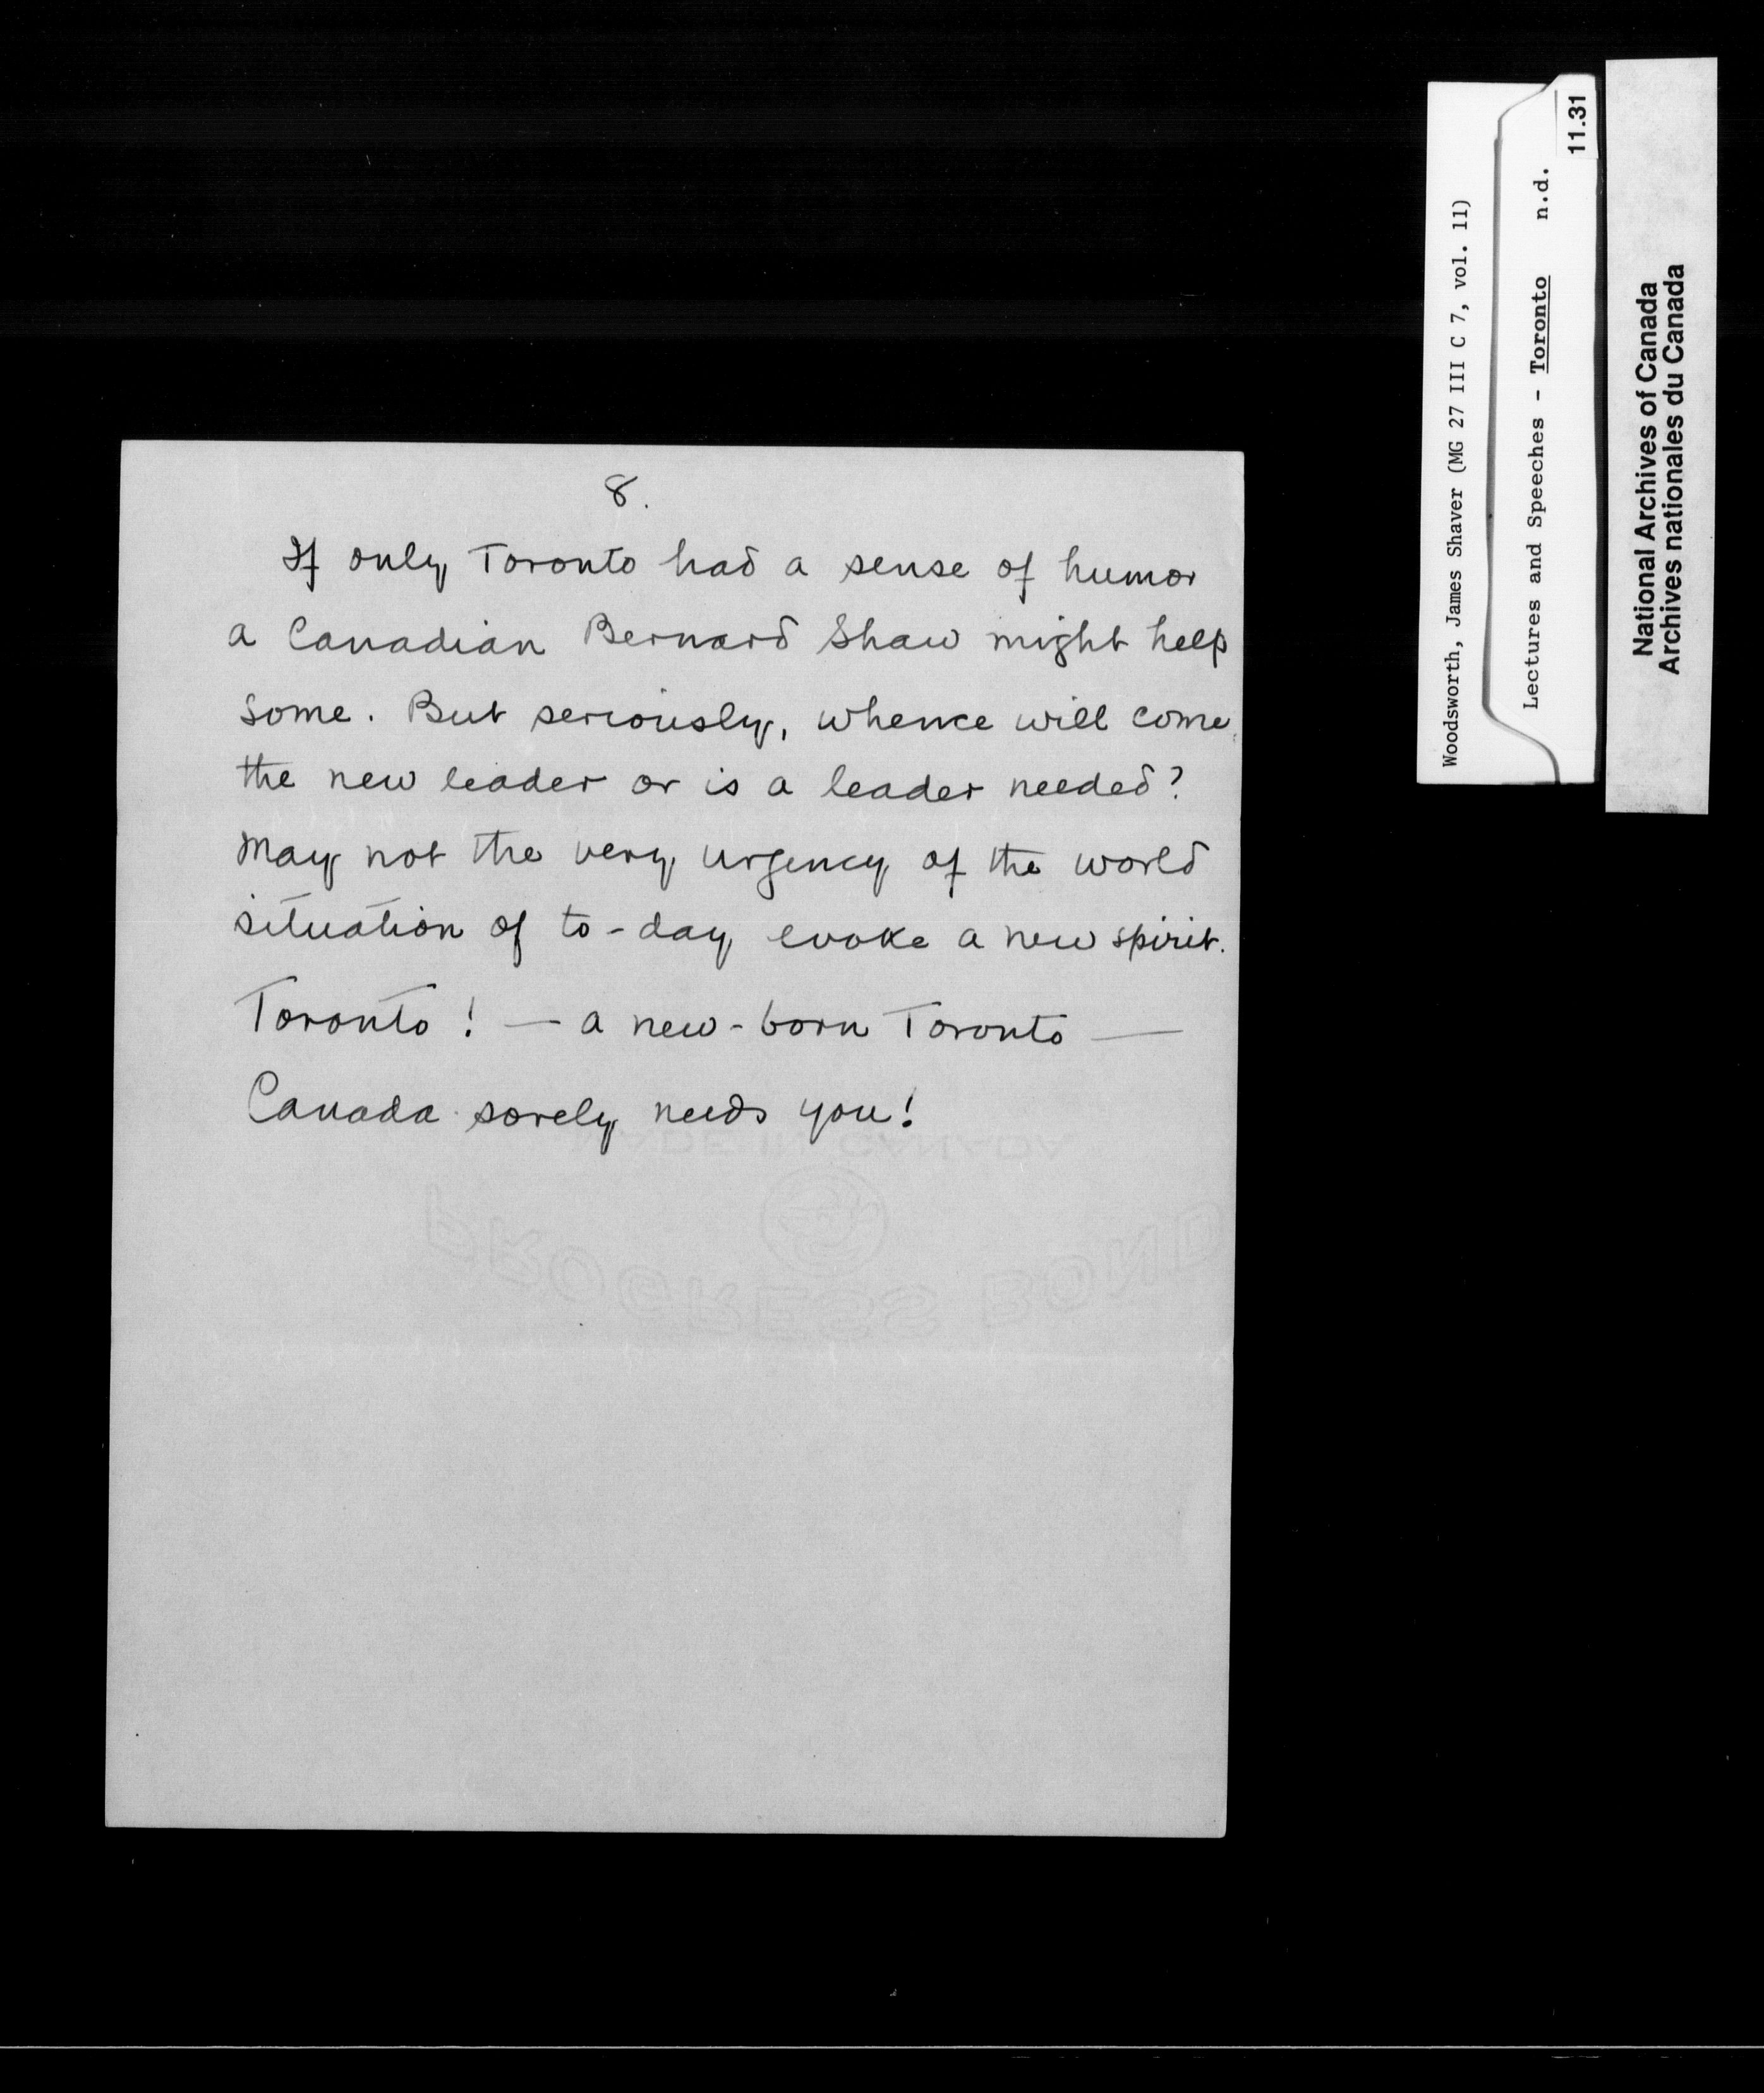 8.
If only Toronto had a sense of humor
a Canadian Bernard Shaw might help
some. But seriously, whence will come
the new leader or is a leader needed?
May not the very urgency of the world
situation of to-day evoke a new spirit.
Toronto! — a new-born Toronto —
Canada sorely needs you!
MADE IN CANADA
PROGRESS BOND
Woodsworth, James Shaver (MG 27 III C 7, vol. 11)
Lectures and Speeches - Toronto n.d.
11.31
National Archives of Canada
Archives nationales du Canada